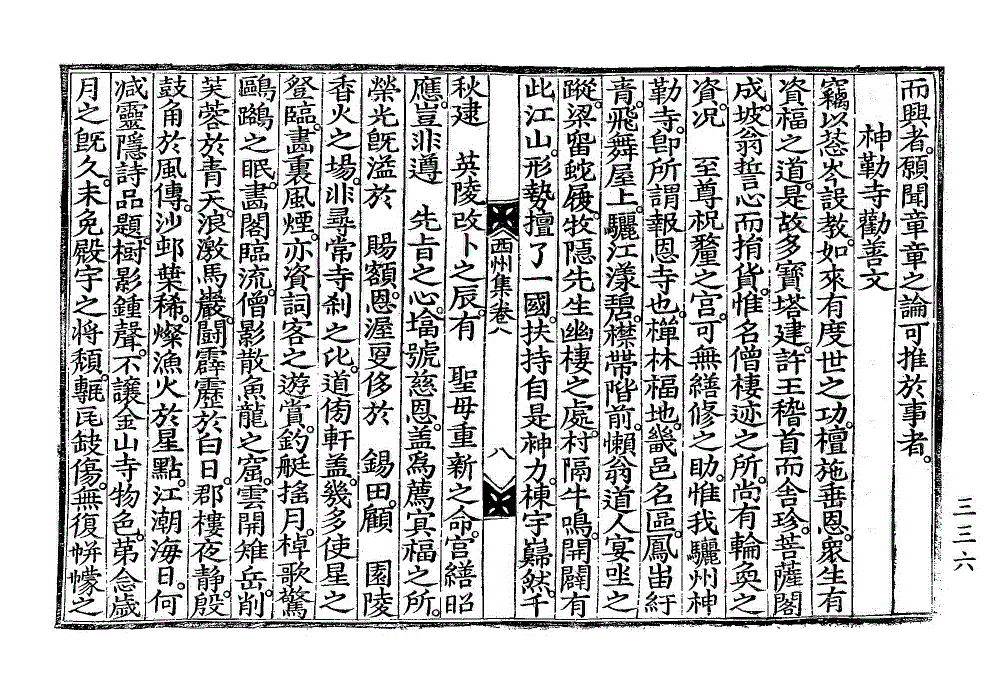 而興者。願聞章章之論可推於事者。
神勒寺勸善文
竊以葱岑設敎。如來有度世之功。檀施垂恩。衆生有
資福之道。是故多寶塔建。許王稽首而舍珍。菩薩閣
成。坡翁誓心而捐貨。惟名僧棲迹之所。尙有輪奐之
資。况 至尊祝釐之宮。可無繕修之助。惟我驪州神
勒寺。卽所謂報恩寺也。禪林福地。畿邑名區。鳳岫紆
靑。飛舞屋上。驪江漾碧。襟帶階前。懶翁道人宴坐之
蹤。梁留蛇屨。牧隱先生幽棲之處。村隔牛鳴。開闢有
此江山。形勢擅了一國。扶持自是神力。棟宇巋然。千
西州集卷八
八
秋逮 英陵改卜之辰。有 聖母重新之命。宮繕昭
應。豈非遵 先旨之心。塔號慈恩。盖爲薦冥福之所。
榮光旣溢於 賜額。恩渥更侈於 錫田。顧 園陵
香火之場。非尋常寺刹之比。道傍軒盖。幾多使星之
登臨。畵裏風煙。亦資詞客之遊賞。釣艇搖月。棹歌驚
鷗鷁之眠。畵閣臨流。僧影散魚龍之窟。雲開雉岳。削
芙蓉於靑天。浪激馬巖。鬪霹靂於白日。郡樓夜靜。殷
鼓角於風傳。沙邨葉稀。燦漁火於星點。江潮海日。何
减靈隱詩品題。樹影鍾聲。不讓金山寺物色。第念歲
月之旣久。未免殿宇之將頹。甎瓦缺傷。無復帡幪之
三三六